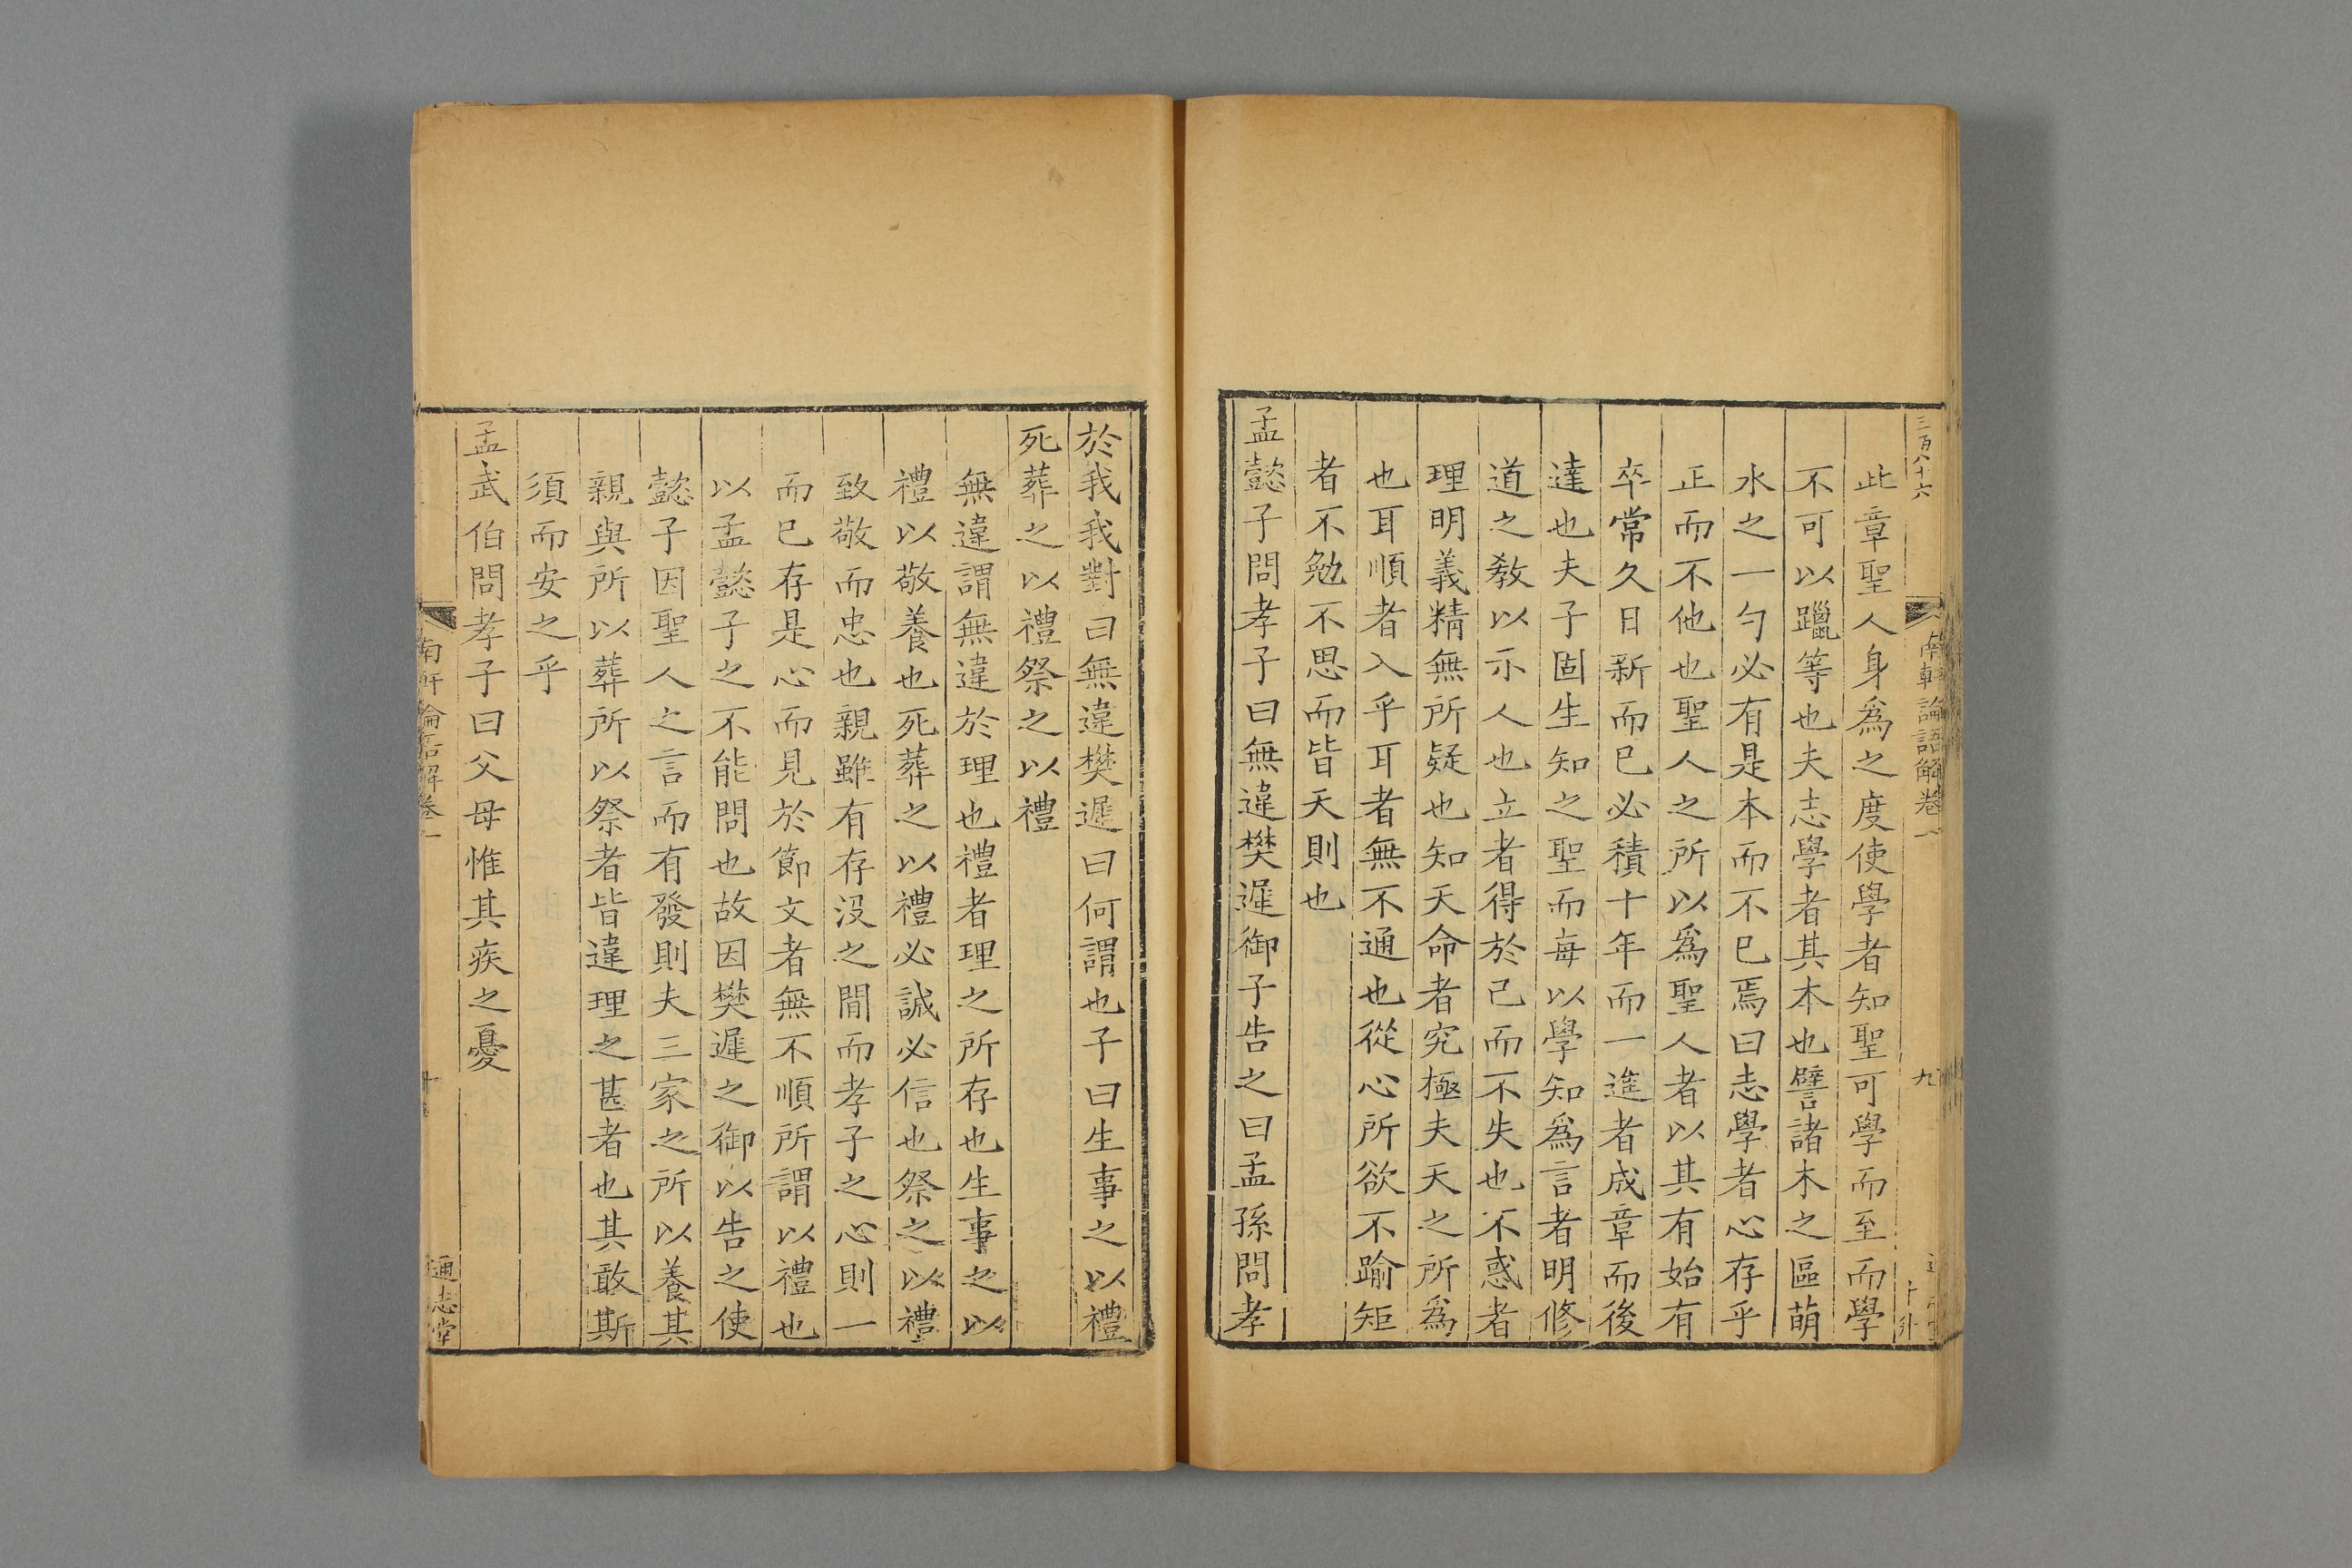 三百八十六
南軒論語解卷一
九
此章聖人身爲之度使學者知聖可學而至而學
不可以躐等也夫志學者其本也譬諸木之區萌
水之一勺必有是本而不已焉曰志學者心存乎
正而不他也聖人之所以爲聖人者以其有始有
卒常久日新而已必積十年而一進者成章而後
達也夫子固生知之聖而每以學知爲言者明修
道之敎以示人也立者得於己而不失也不惑者
理明義精無所疑也知天命者究極夫天之所爲
也耳順者入乎耳者無不通也從心所欲不踰矩
者不勉不思而皆天則也
孟懿子問孝子曰無違樊遲御子告之曰孟孫問孝
於我我對曰無違樊遲曰何謂也子曰生事之以禮
死葬之以禮祭之以禮
無違謂無違於理也禮者理之所存也生事之以
禮以敬養也死葬之以禮必誠必信也祭之以禮
致敬而忠也親雖有存没之間而孝子之心則一
而已存是心而見於節文者無不順所謂以禮也
以孟懿子之不能問也故因樊遲之御以告之使
懿子因聖人之言而有發則夫三家之所以養其
親與所以葬所以祭者皆違理之甚者也其敢斯
須而安之乎
孟武伯問孝子曰父母惟其疾之憂
南軒論語解卷一
十
通志堂